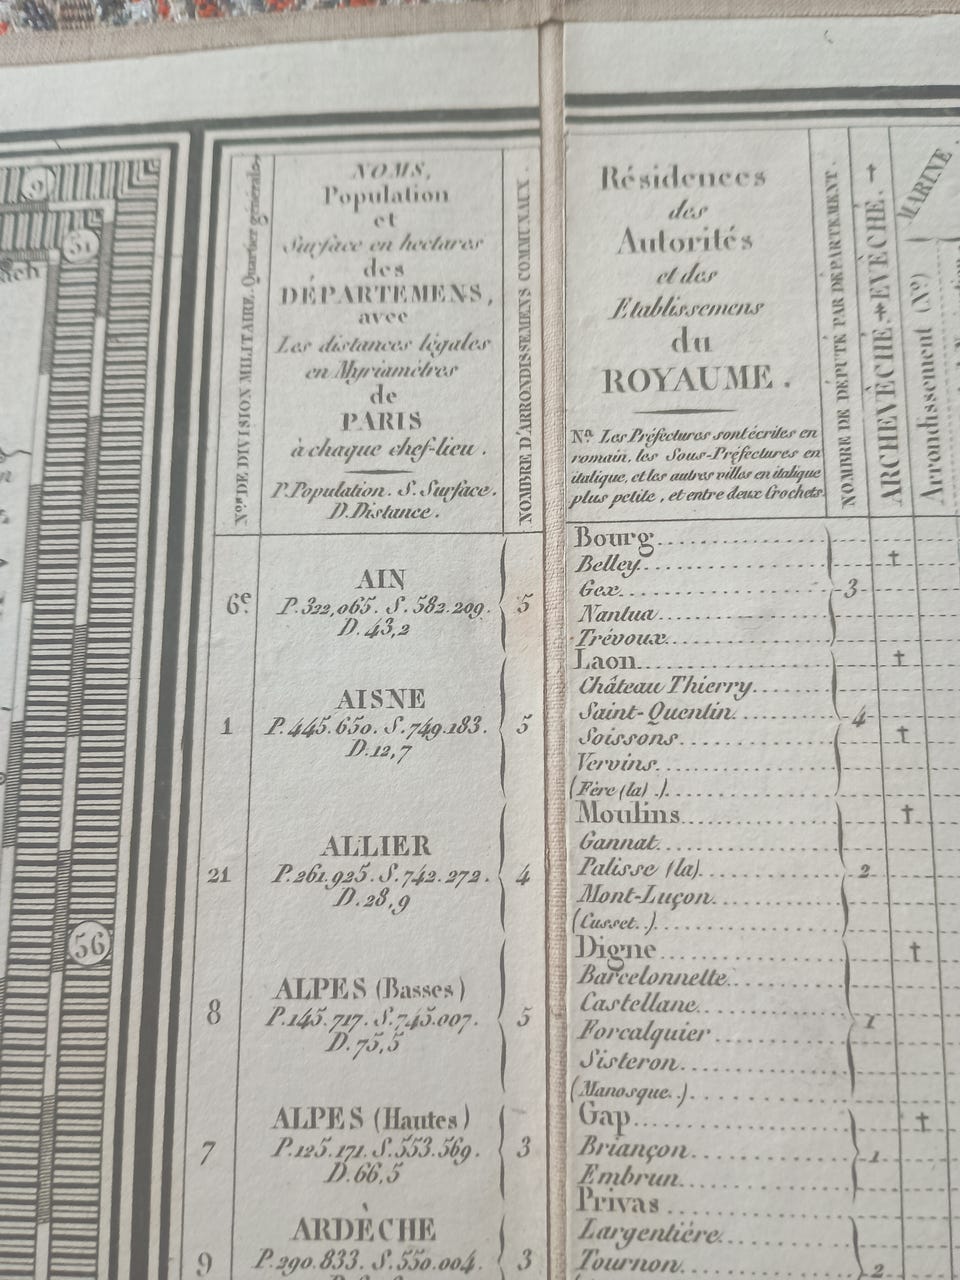 9
51
ach
56
N.os DE DIVISION MILITAIRE. Quartier général.
NOMS,
Population
et
Surface en hectares
des
DÉPARTEMENS,
avec
Les distances légales
en Myriamètres
de
PARIS
à chaque chef-lieu.
P. Population. S. Surface.
D. Distance.
NOMBRE D'ARRONDISSEMENS COMMUNAUX.
Résidences
des
Autorités
et des
Etablissemens
du
ROYAUME.
Na. Les Préfectures sont écrites en
romain, les Sous-Préfectures en
italique, et les autres villes en italique
plus petite, et entre deux Crochets.
NOMBRE DE DÉPUTÉ PAR DÉPARTEMENT.
ARCHEVÊCHÉ. ‡ EVÊCHÉ. †
MARINE.
Arrondissement (No.)
6e
AIN
P. 322,065. S. 582.209.
D. 43,2
5
Bourg
Belley †
Gex 3
Nantua
Trévoux
1
AISNE
P. 445.650. S. 749.183.
D. 12,7
5
Laon †
Château Thierry
Saint-Quentin 4
Soissons †
Vervins
(Fère (la).)
21
ALLIER
P. 261.925. S. 742.272.
D. 28,9
4
Moulins †
Gannat
Palisse (la) 2
Mont-Luçon
(Cusset.)
8
ALPES (Basses)
P. 145.717. S. 745.007.
D. 75,5
5
Digne †
Barcelonnette
Castellane
Forcalquier 1
Sisteron
(Manosque.)
7
ALPES (Hautes)
P. 125.171. S. 553.569.
D. 66,5
3
Gap †
Briançon 1
Embrun
9
ARDÈCHE
P. 290.833. S. 550.004.
3
Privas
Largentière
Tournon 2